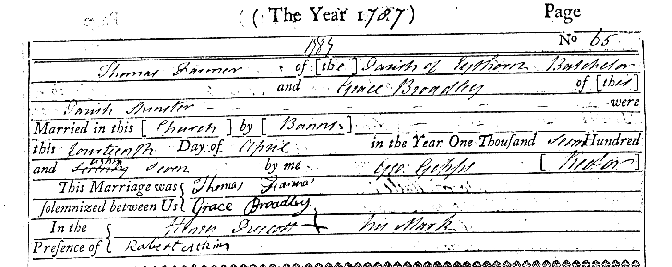 ( The Year 1787) Page
1787 No 65
Thomas Farmer of [the] Parish of Batchelor
and Grace Broadley of [this]
Parish Spinster were
Married in this [Church] by [Banns]
this Day of April in the Year One Thousand Seven Hundred
and Seven by me Geo. Gepps [Rector]
This Marriage was { Thomas Farmer
solemnized between Us { Grace Broadley
In the { Prescott } his Mark
Presence of { Robert